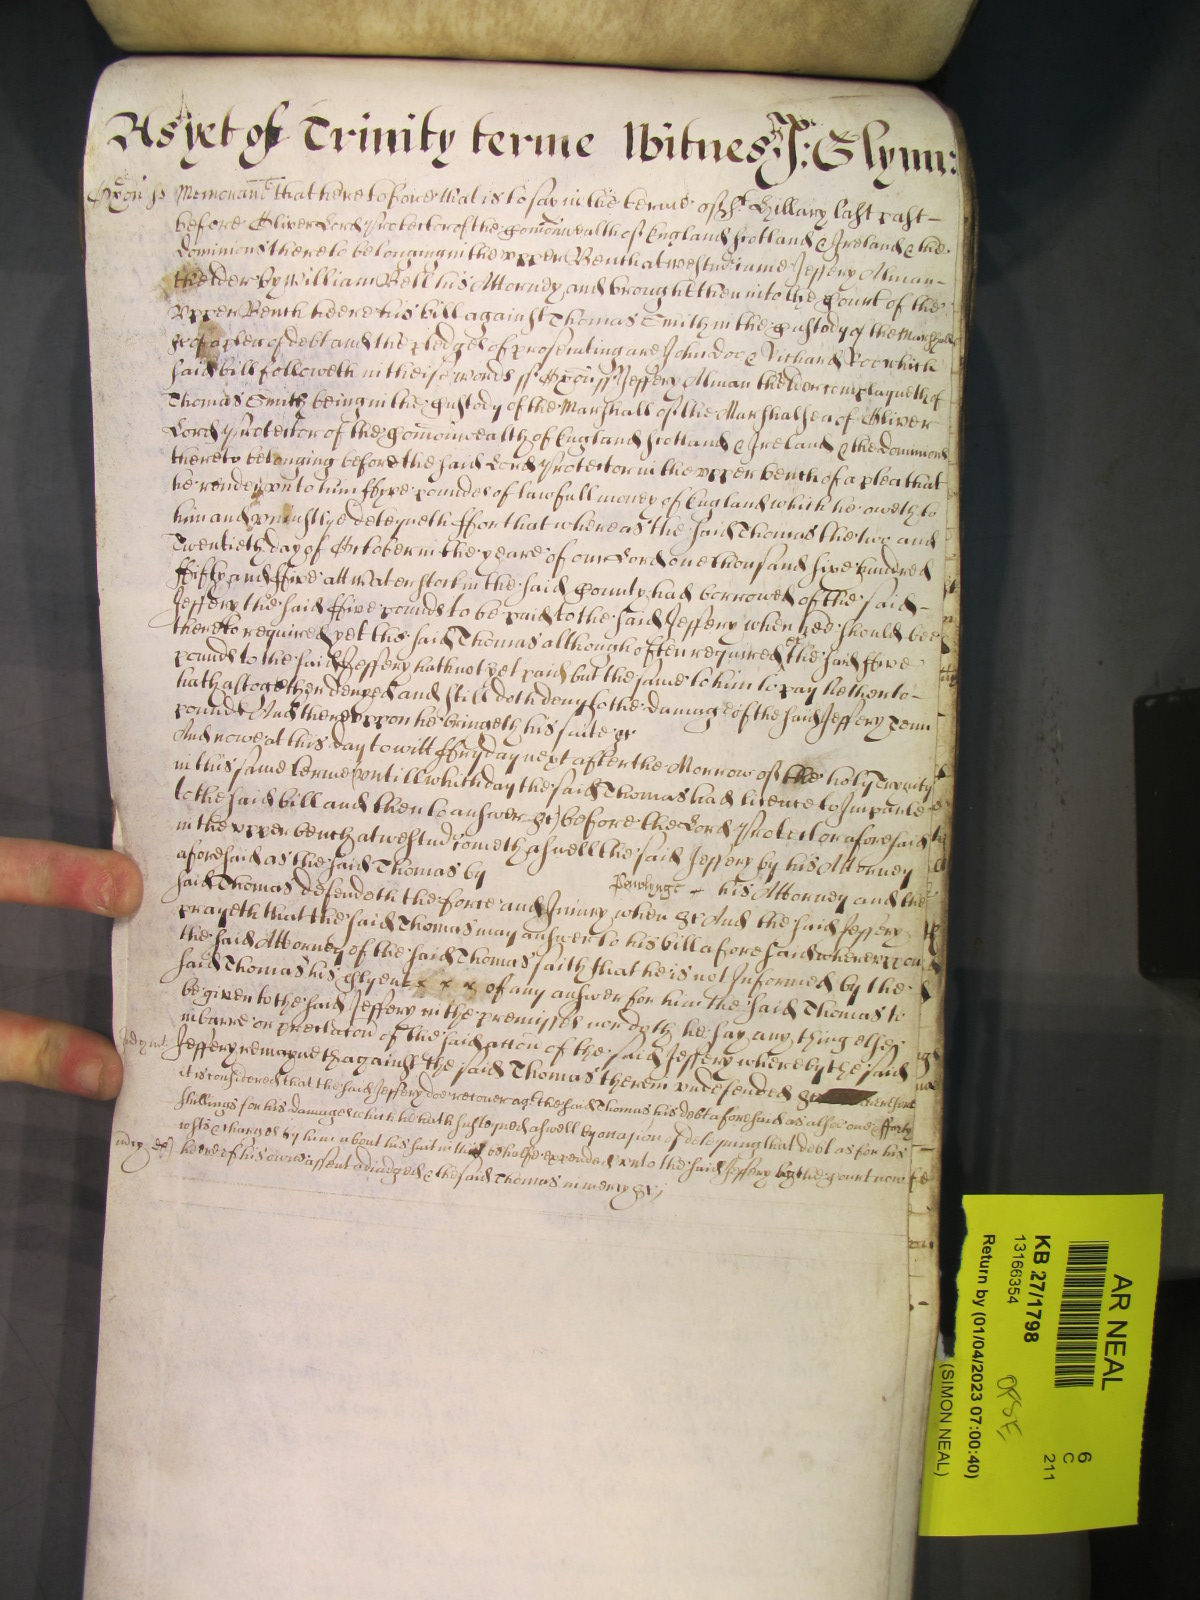 As yet of Trinity terme Witnes J: Glynn:
Oxon ss Memorand that heretofore that is to say in the terme of St Hillary last past
before Oliver Lord Protector of the Comonwealth of England Scotland & Ireland & the
dominions thereto belonging in the upper Bench at Westmr came Jeffery Alman
the elder by William Bell his Attorney and brought then into the Court of the
Upper Bench heere his bill against Thomas Smith in the Custody of the Marshall
&c of a plea of debt and the pledges of prosecuting are John Doe & Richard Roe which
said bill followeth in theise words ss Oxon ss Jeffery Alman the elder complayneth of
Thomas Smith being in the Custody of the Marshall of the Marshalsea of Oliver
Lord Protector of the Comonwealth of England Scotland & Ireland & the dominions
thereto belonging before the said Lord Protector in the upper bench of a plea that
he render unto him ffyve poundes of lawfull money of England which he oweth to
him and uniustlye deteyneth ffor that whereas the said Thomas the two and
Twentieth day of October in the yeare of our Lord one thousand sixe hundred
ffifty and ffive att Waterstock in the said County had borrowed of the said
Jeffery the said ffive pounds to be paid to the said Jeffery when hee should bee
thereto required yet the said Thomas although often required the said ffive
pounds to the said Jeffery hath not yet paid but the same to him to pay hetherto
hath altogether denyed and still doth deny to the damage of the said Jeffery Tenn
pounds And thereuppon he bringeth his suite &c
And nowe at this day to witt ffryday next after the Morrow of the holy Trinity
in this same terme untill which day the said Thomas had licence to Imparle
to the said bill and then to answer &c) before the Lord Protector aforesaid
in the upper bench at Westmr cometh aswell the said Jeffery by his Attorney
aforesaid as the said Thomas by his Attorney and the
said Thomas defendeth the force and Iniury when &c And the said Jeffery
prayeth that the said Thomas may answer to his bill aforesaid whereuppon
the said Attorney of the said Thomas saith that he is not Informed by the
said Thomas his Clyent x x x of any answer for him the said Thomas to
be given to the said Jeffery in the premisses nor doth he say any thing else
in barre or preclucon of the said accon of the said Jeffery whereby the said
Judgmt Jeffery remayneth against the said Thomas therein undefended &c Therefore
it is considered that the said Jeffery doe recover agt the said Thomas his debt aforesaid as alsoe one & fforty
shillings for his damages which he hath susteyned aswell by occasion of deteyning that debt as for his
costs & charges by him about his suit in this behalfe expended unto the said Jeffery by the Court now
mercy &c) heere of his owne assent adiudged & the said Thomas in mercy &c;
AR NEAL
KB 27/1798
13166354
Return by (01/04/2023 07:00:40)
(SIMON NEAL)
6
C
211